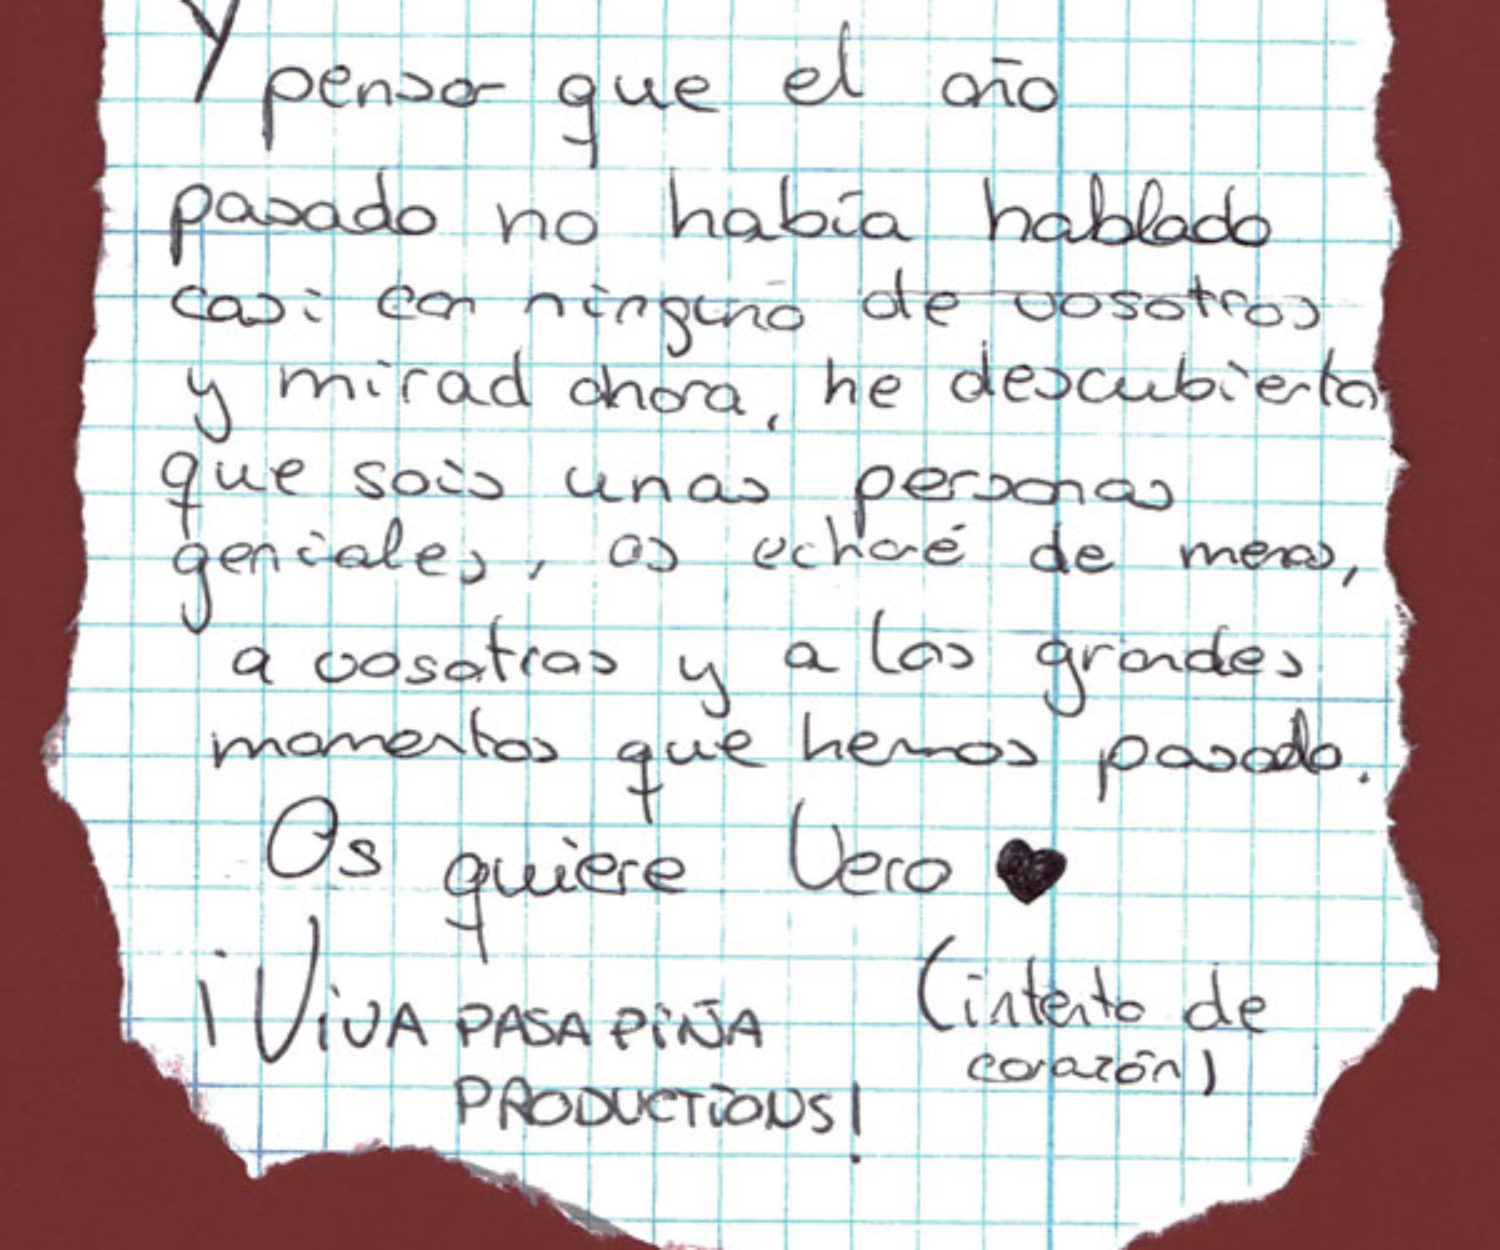 Y pensar que el año
pasado no había hablado
casi con ninguno de vosotros
y mirad ahora, he descubierto
que sois unas personas
geniales, os echaré de menos,
a vosotras y a los grandes
momentos que hemos pasado.
Os quiere Vero ♥
¡VIVA PASA PIÑA
PRODUCTIONS!
(intento de
corazón)